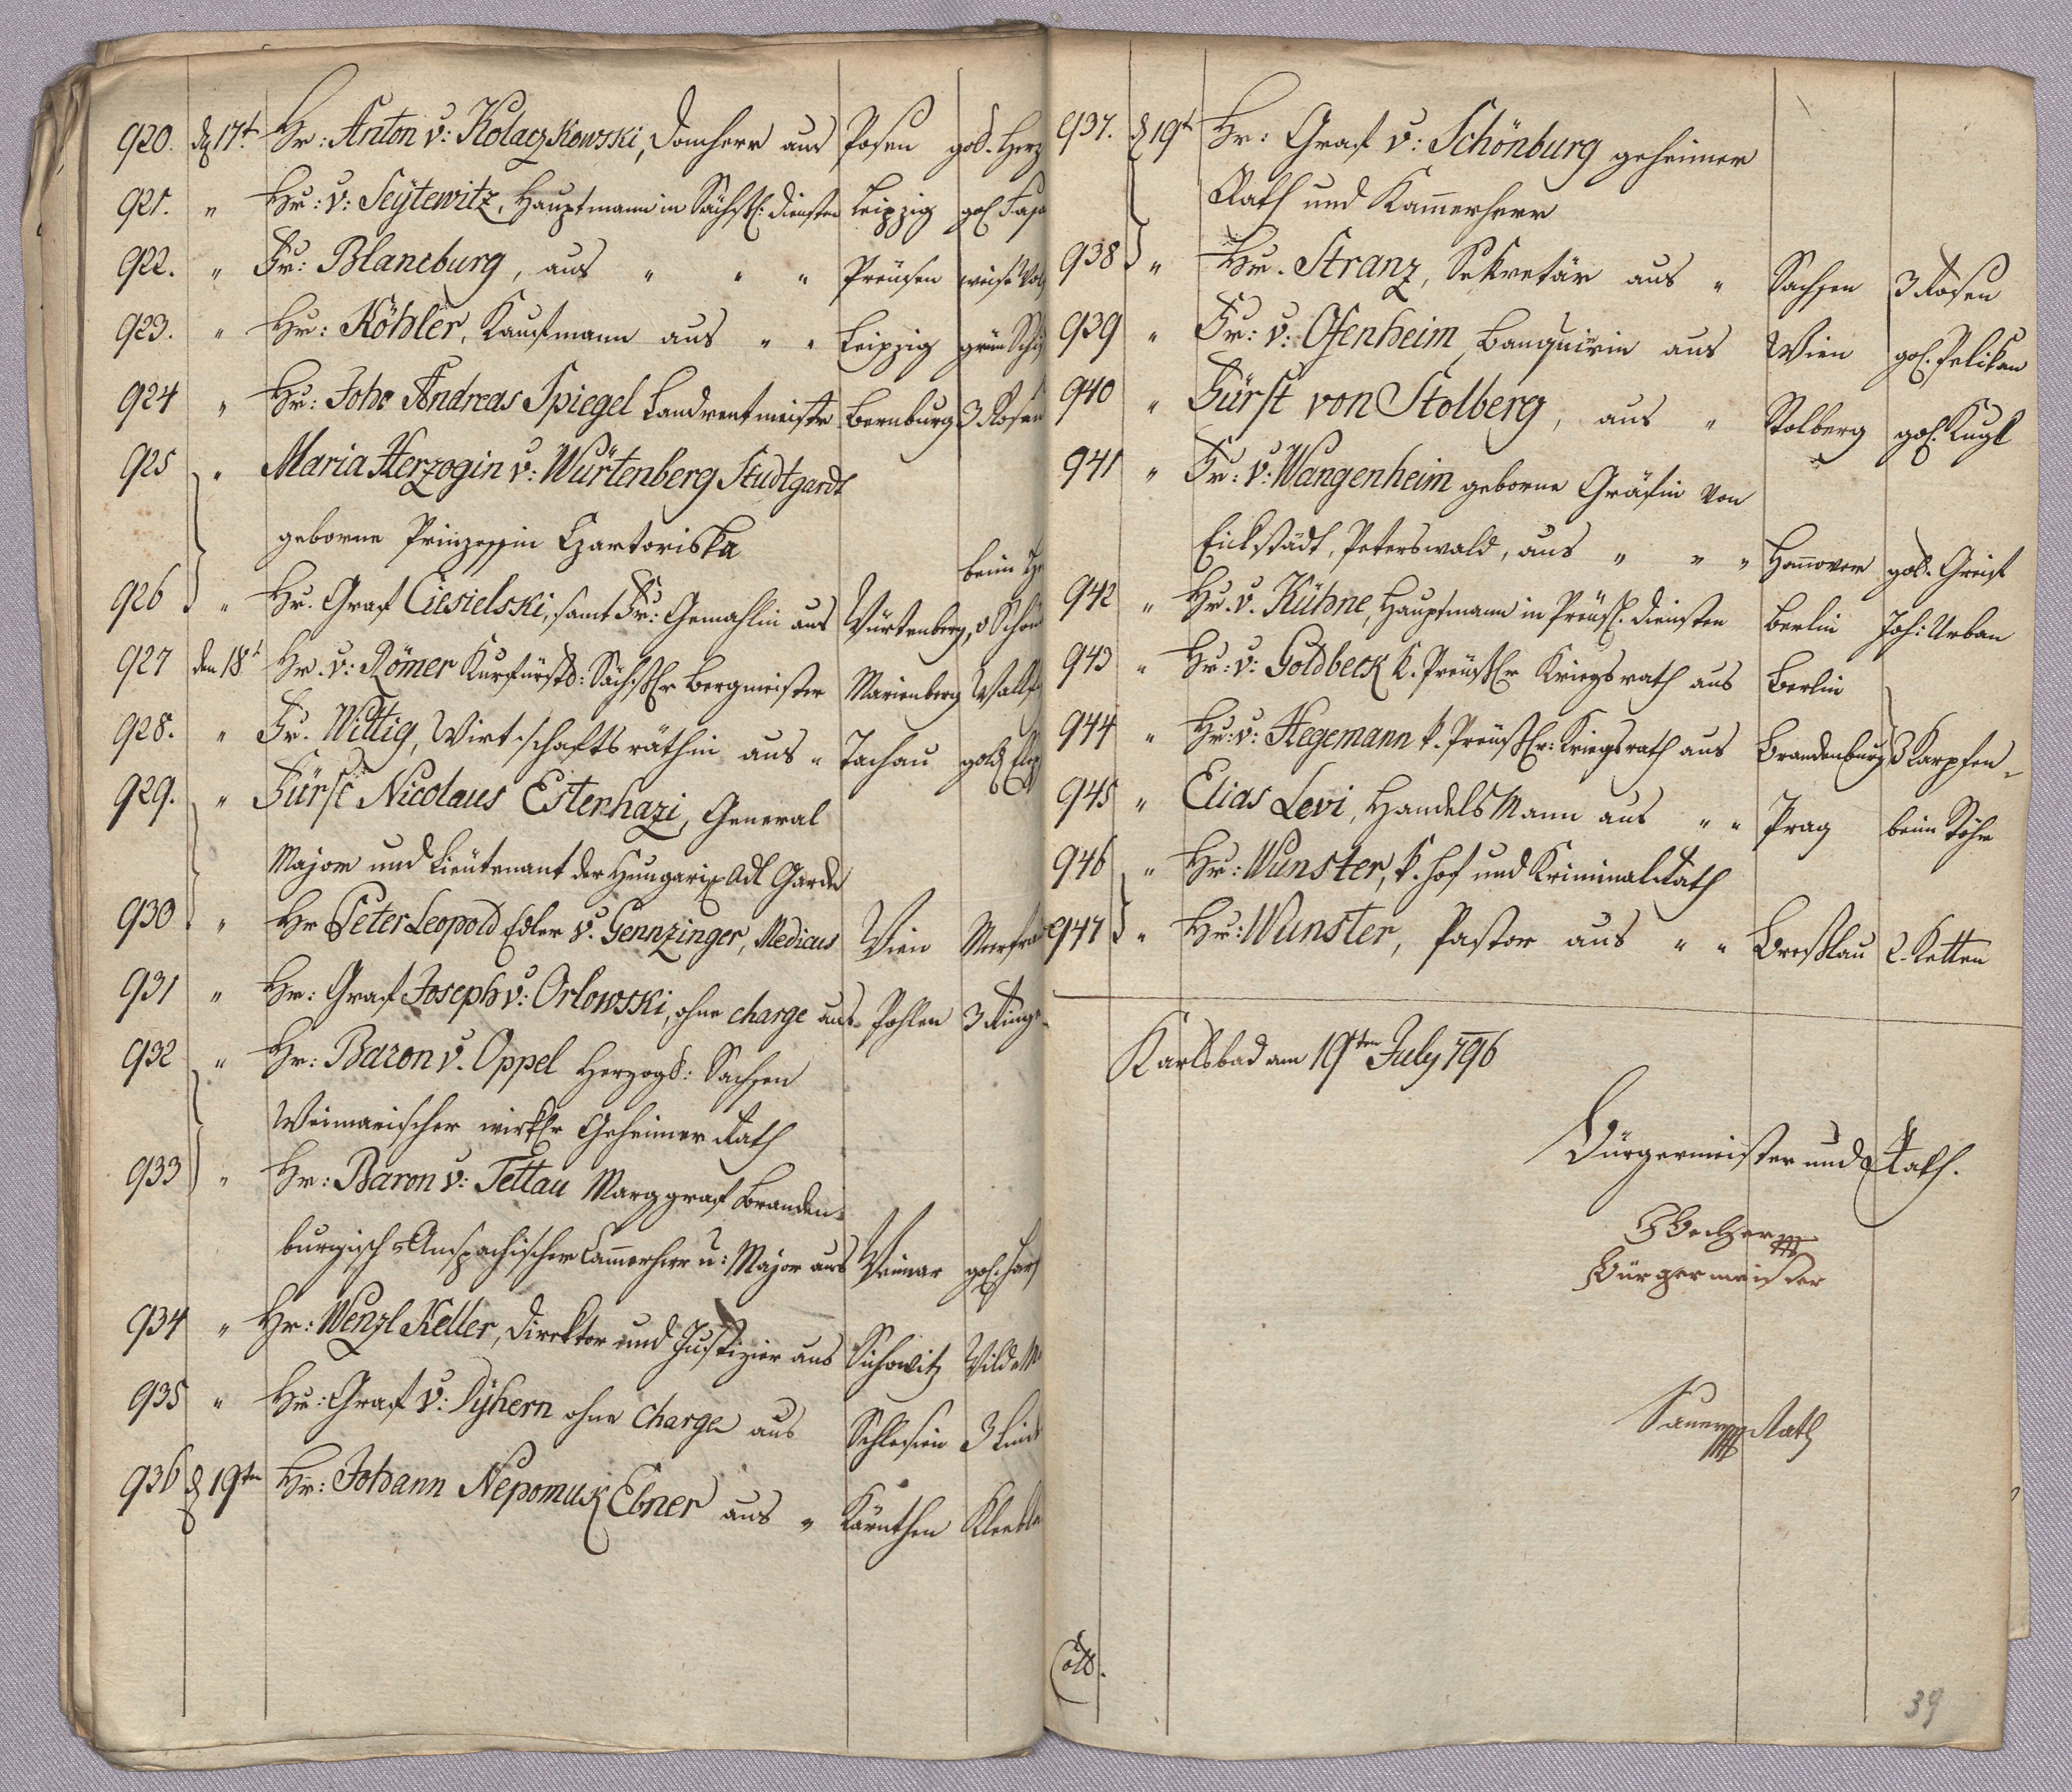 920. d 17t Hr: Anton v: Kolaczkowski, Domherr aus Posen gold. Herz
921. " Hr: v: Seÿtewitz, Hauptmann in Sächsl: Diensten Leipzig gol. Fasa
922. " Fr: Blanckburg, aus " " " Preüsen weise
923. " Hr: Köhler, Kaufmann aus " " Leipzig grün Schi
924 " Hr: Joh: Andreas Spiegel Landrentmeister Bernburg 3 Rosen
925 " Maria Herzogin v: Würtenberg Studtgardt
geborne Prinzessin Czartoriska
beim
926 " Hr. Graf Ciesielski, samt Fr: Gemahlin aus Würtenberg, v Schön
927 den 18t Hr. v: Römer Kurfürstl: Sächßl Bergmeister Marienberg Wallfi
928. " Fr. Wittig, Wirtschaftsräthin aus " Tachau gold
929. " Fürst Nicolaus Esterhazi, General
Major und Lieutenant der Hungaris Adl Garde
930 " Hr Peter Leopold Edler v. Gennzinger, Medicus Wien Meerfräu
931 " Hr: Graf Joseph v: Orlowski, ohne charge aus Pohlen 3 Ringe
932 " Hr: Baron v. Oppel Herzogl: Sachsen
Weimarischer wirkl Geheimer Rath
933 " Hr: Baron v: Tettau Marggraf Branden-
burgisch Anspachischer Cammerherr u: Major aus Weimar gol. Harf
934 " Hr: Wenzl Keller, Direktor und Justizier aus Sichowitz Wilde M
935 " Hr: Graf v: Dÿhern ohne charge aus Schlesien 3 Lind
936 d 19ten Hr: Johann Nepomuk Ebner aus " Kärnthen Kleebla
937. d 19t Hr: Graf v: Schönburg geheimer
Rath und Kammerherr
938 " Hr. Stranz, Sekretär aus " Sachsen 3 Rosen
939 " Fr: v: Ofenheim, Banquirin aus Wien gol. Pelikan
940 " Fürst von Stolberg, aus " Stolberg gol. Kugl
941 " Fr: v: Wangenheim geborne Gräfin von
Eickstädt, Peterswald, aus " " " Hannover gold. Greif
942 " Hr. v. Kühne, Hauptmann in Preüsl. Diensten Berlin Joh: Urban
943 " Hr: v: Goldbeck k. Preüßl Kriegsrath aus Berlin
944 " Hr: v: Hegemann k. Preüßl: Kriegsrath aus Brandenburg 3 Karpfen
945 " Elias Levi, Handels Mann aus " " Prag beim Röhr
946 " Hr: Wunster, k. Hof und Kriminalrath
947 " Hr: Wunster, Pastor aus " " Breßlau 2. Ketten
Karlsbad am 19ten July 796
Bürgermeister und Rath.
Becher
Bürgermeister
Sauer Rath
39